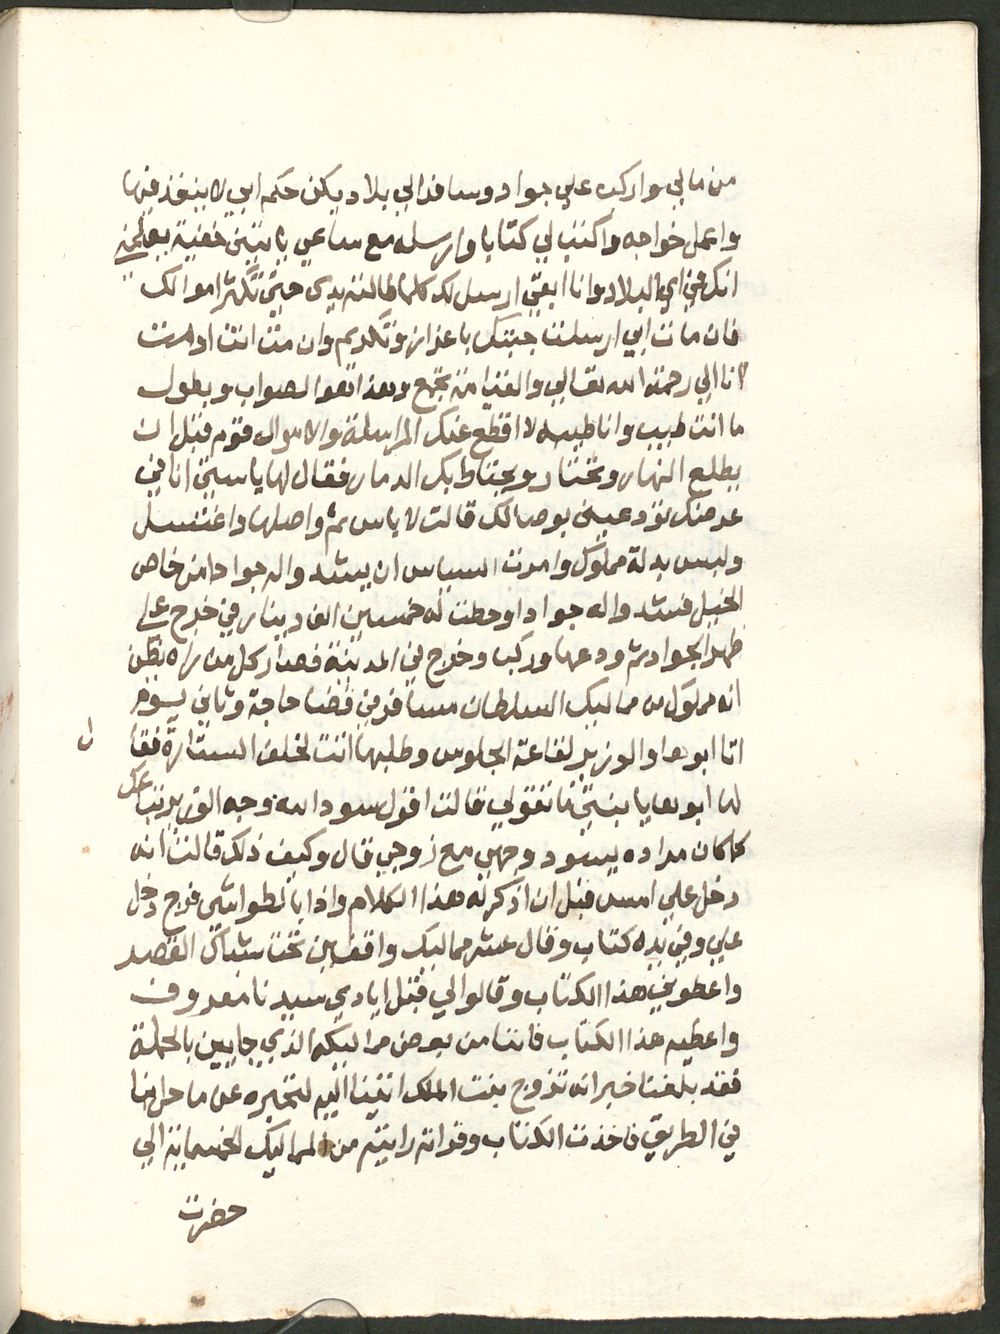 من مالي واركب علي جواد وسافر الي بلاد يكون حكم ابي لا ينفذ فيها
واعمل خواجه واكتب لي كتابا وارسله مع ساعي ياتيني خفية
انك في اي البلاد وانا ابقي ارسل لك كلما طالته يدي حتي تكثر اموالك
فان مات ابي ارسلت جبتك باعزاز وتكريم وان مت انت او مت
انا الي رحمة الله تعالي والقيامة تجمع وهذا هو الصواب ويطول
ما انت طيب وانا طيبه لا اقطع عنك المراسلة والاموال قوم قبل ان
يطلع النهار وتحتار ويحتاط بك الدمار فقال لها يا ستي انا في
عرضك تودعيني بوصالك قالت لا باس ثم واصلها واغتسل
ولبس بدلة مملوك وامرت السياس ان يشدوا له جوادا من خاص
الخيل فشدوا له جوادا وحطت له خمسين الف دينار في خرج علي
ظهر الجواد ثم ودعها وركب وخرج في المدينة فصار كل من راه يظن
انه مملوك من مماليك السلطان مسافر في قضا حاجة وثاني يوم
اتا ابوها والوزير لقاعة الجلوس وطلبها اتت لخلف الستارة فقال
لها ابوها يا بنتي ما تقولي قالت اقول سود الله وجه الوزير بتاعك
كما كان مراده يسود وجهي مع زوجي قال وكيف ذلك قالت انه
دخل علي امس قبل ان اذكر له هذا الكلام واذا بالطواشي فرج دخل
علي وفي يده كتاب وقال عشر مماليك واقفين تحت شباك القصر
واعطوني هذا الكتاب وقالوا لي قبل ايادي سيدنا معروف
واعطيه هذا الكتاب فاننا من بعض مماليكه الذي جايين بالحملة
فقد بلغنا خبر انه تزوج بنت الملك اتينا اليه لنخبره عن ما حل بنا
في الطريق فاخذت الكتاب وقراته رايته من المماليك الخمسماية الي
حضرت